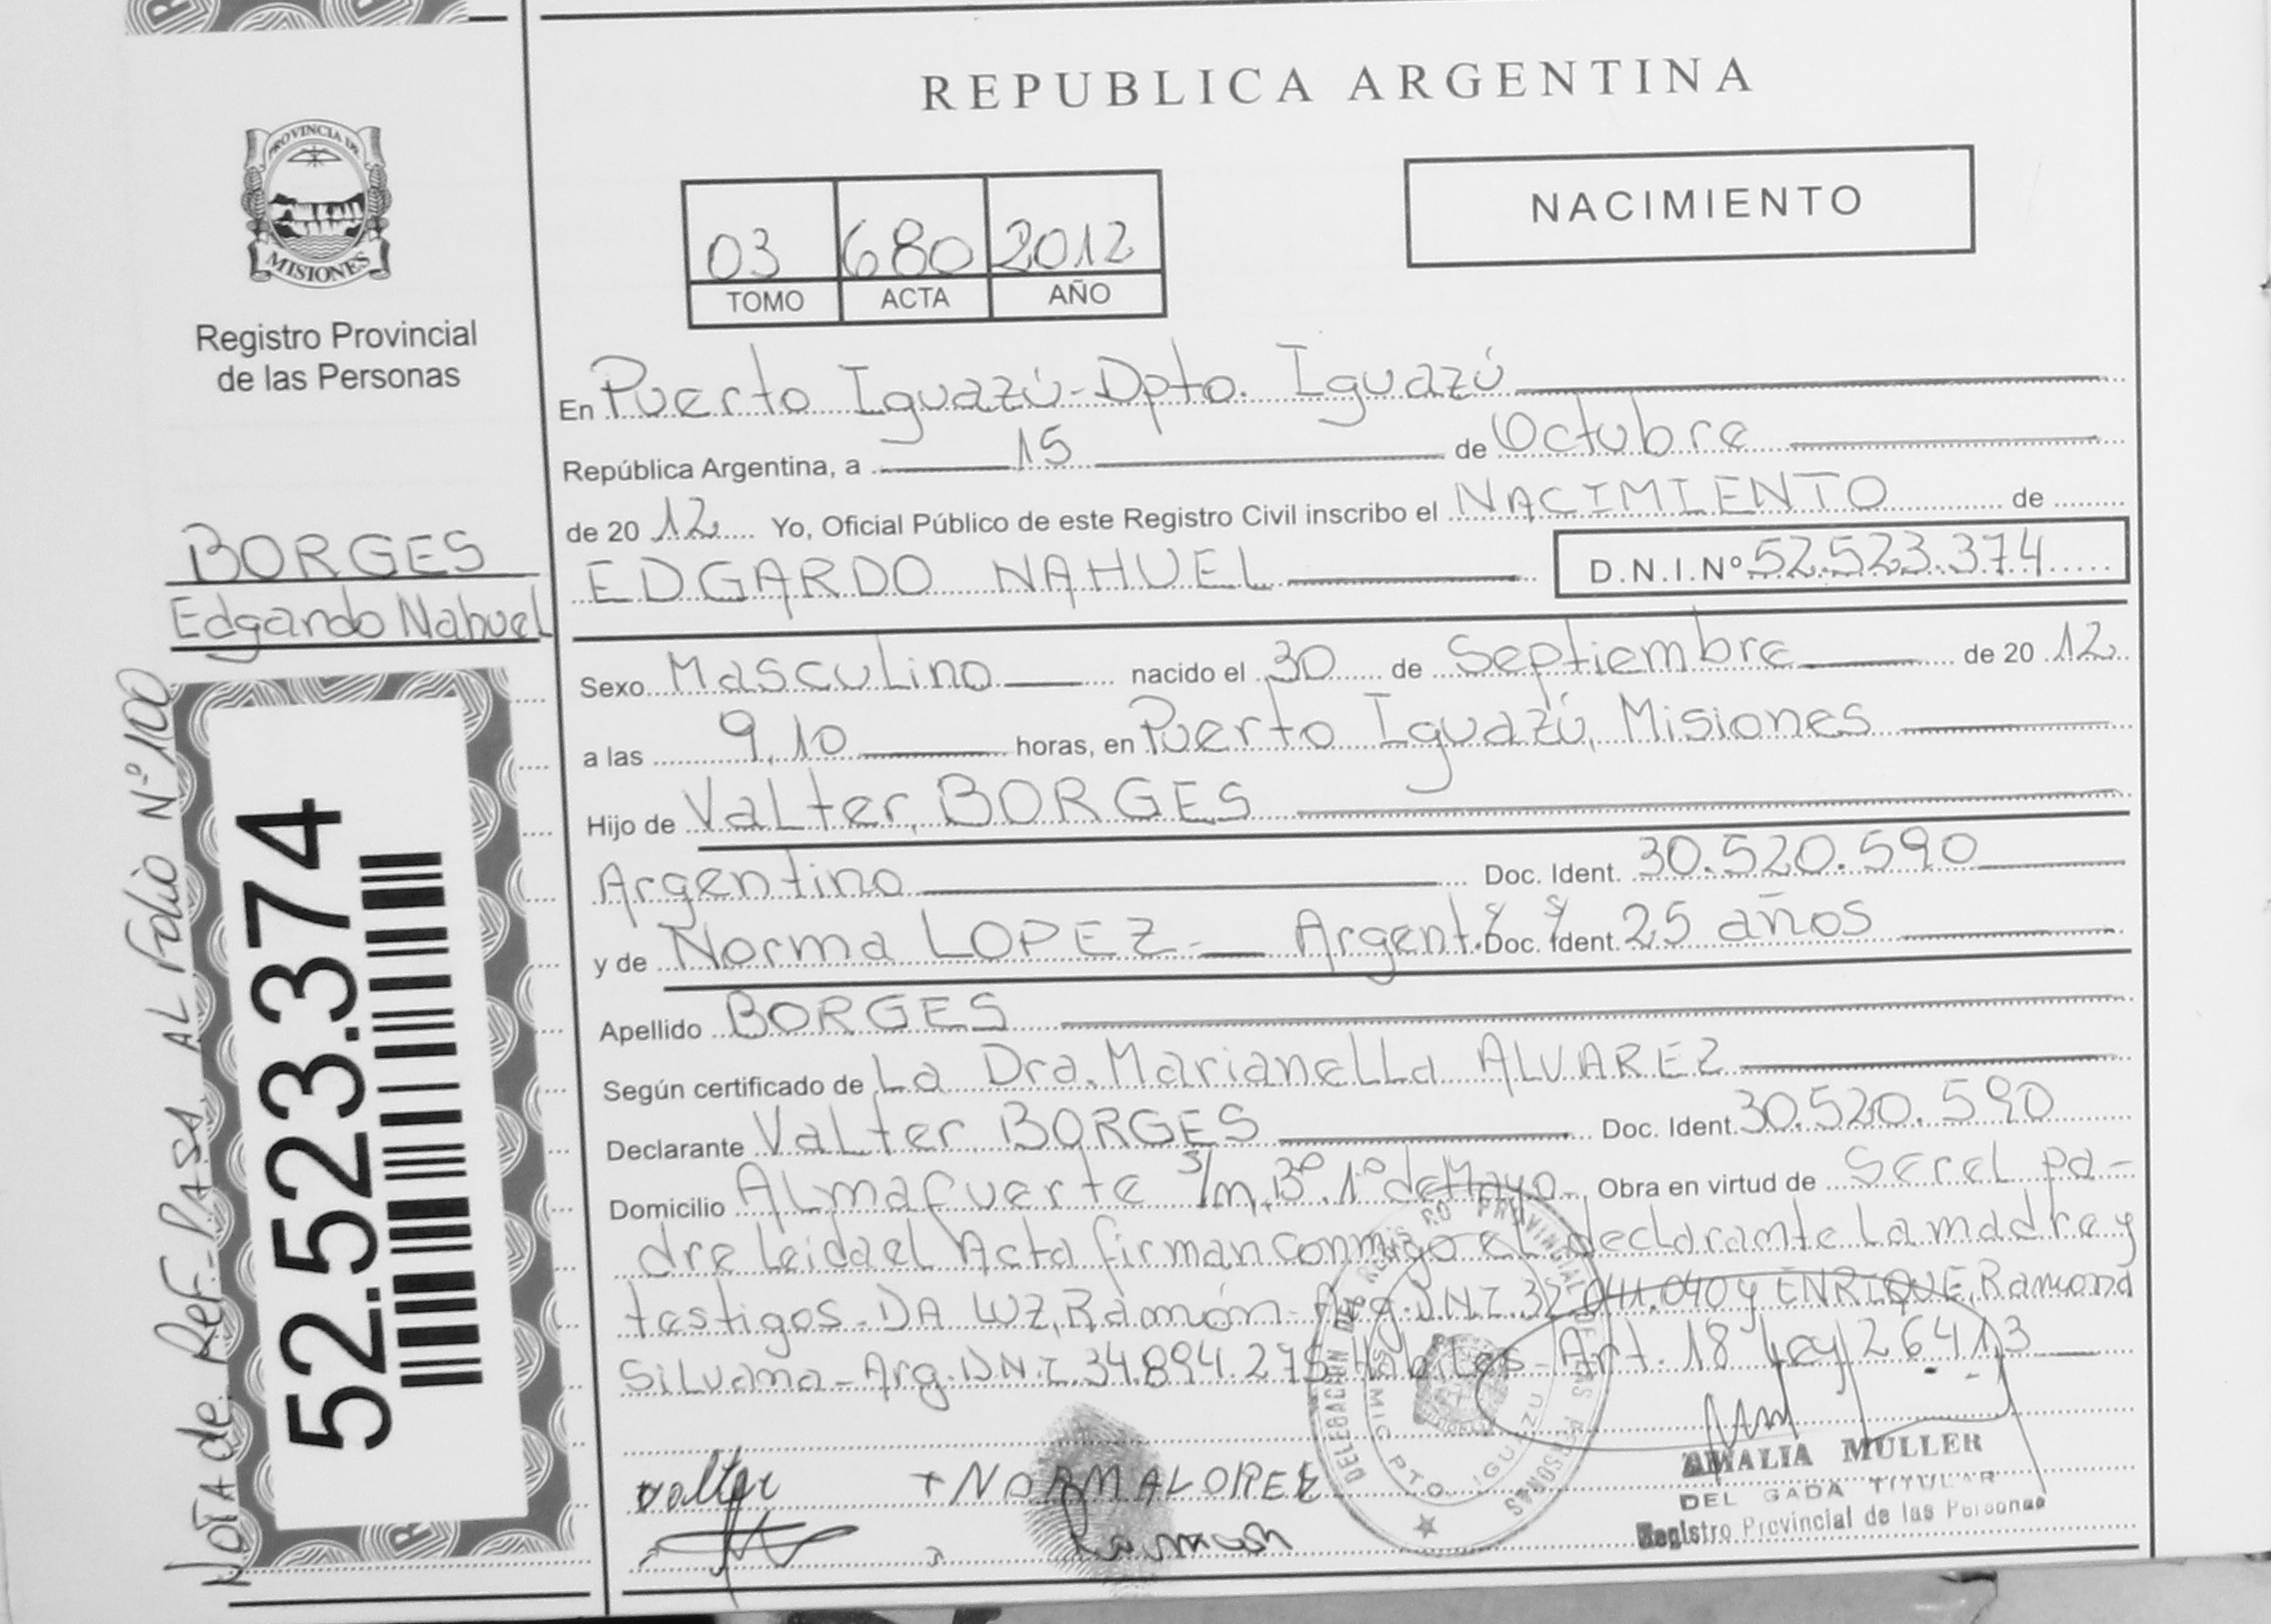 REPUBLICA ARGENTINA
PROVINCIA DE
MISIONES
Registro Provincial
de las Personas
03 680 2012
TOMO ACTA AÑO
NACIMIENTO
En Puerto Iguazú-Dpto. Iguazú
República Argentina, a 15 de Octubre
de 20 12 Yo, Oficial Público de este Registro Civil inscribo el NACIMIENTO de
EDGARDO NAHUEL D.N.I.Nº 52.523.374
BORGES
Edgardo Nahuel
Sexo Masculino nacido el 30 de Septiembre de 20 12
a las 9,10 horas, en Puerto Iguazú, Misiones
Hijo de Valter, BORGES
Argentino Doc. Ident. 30.520.590
y de Norma LOPEZ- Argent. Doc. Ident. 25 años
Apellido BORGES
Según certificado de La Dra. Marianella ALVAREZ
Declarante Valter, BORGES Doc. Ident. 30.520.590
Domicilio Almafuerte s/n, Bº. 1º de Mayo Obra en virtud de Ser el pa-
dre leida el Acta firman conmigo el declarante La madre y
testigos- DA LUZ, Ramón- Arg. D.N.I. 32.041.040 y ENRIQUE, Ramona
Silvana- Arg. D.N.I. 34.894.275 Habiles- Art. 18 Ley 26.413
52.523.374
Nota de Ref.- PASA AL Folio Nº 100
Valter
+ NORMA LOPEZ
DELEGACION DEL REGISTRO PROVINCIAL DE LAS PERSONAS
PTO. IGUAZU
AMALIA MULLER
DELEGADA TITULAR
Registro Provincial de las Personas